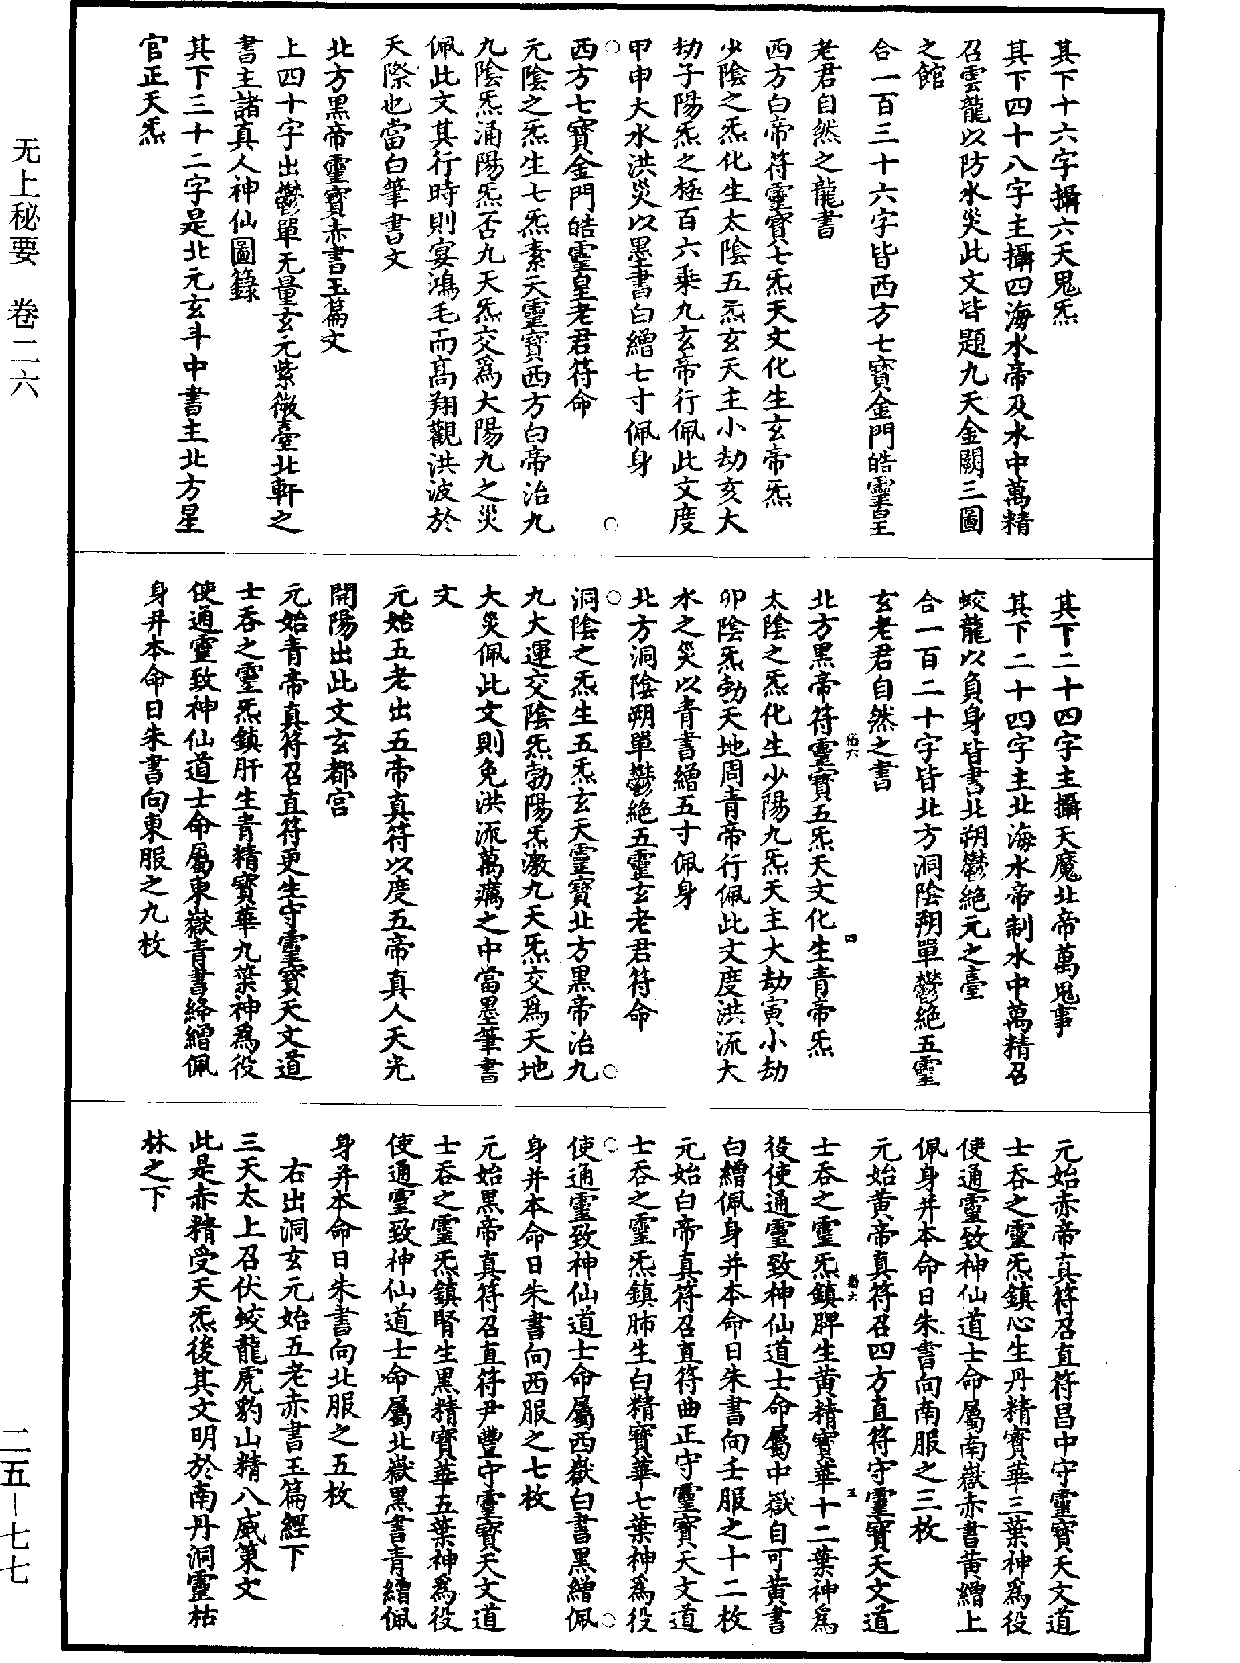 其下十六字攝六天鬼炁
其下四十八字主攝四海水帝及水中萬精
召雲龍以防水災此文皆題九天金闕三圖
之館
合一百三十六字皆西方七寶金門皓靈皇
老君自然之龍書
西方白帝符靈寶七炁天文化生玄帝炁
少陰之炁化生太陰五炁玄天主小劫亥大
劫子陽炁之極百六乘九玄帝行佩此文度
甲申大水洪災以墨書白繒七寸佩身
西方七寶金門皓靈皇老君符命
元陰之炁生七炁素天靈寶西方白帝治九
九陰炁涌陽炁否九天炁交為大陽九之災
佩此文其行時則宴鴻毛而高翔觀洪波於
天際也當白筆書文
北方黑帝靈寶赤書玉篇文
上四十字出鬱單无量玄元紫微臺北軒之
書主諸真人神仙圖籙
其下三十二字是北元玄斗中書主北方星
官正天炁
其下二十四字主攝天魔北帝萬鬼事
其下二十四字主北海水帝制水中萬精召
蛟龍以負身皆書北朔鬱絕元之臺
合一百二十字皆北方洞陰朔單鬱絕五靈
玄老君自然之書
北方黑帝符靈寶五炁天文化生青帝炁
太陰之炁化生少陽九炁天主大劫寅小劫
卯陰炁勃天地周青帝行佩此文度洪流大
水之災以青書繒五寸佩身
北方洞陰朔單鬱絕五靈玄老君符命
洞陰之炁生五炁玄天靈寶北方黑帝治九
九大運交陰炁勃陽炁激九天炁交為天地
大災佩此文則免洪流萬癘之中當墨筆書
文
元始五老出五帝真符以度五帝真人天光
開陽出此文玄都宮
元始青帝真符召直符更生守靈寶天文道
士吞之靈炁鎮肝生青精寶華九葉神為役
使通靈致神仙道士命屬東嶽青書絳繒佩
身并本命日朱書向東服之九枚
元始赤帝真符召直符昌中守靈寶天文道
士吞之靈炁鎮心生丹精寶華三葉神為役
使通靈致神仙道士命屬南嶽赤書黃繒上
佩身并本命日朱書向南服之三枚
元始黃帝真符召四方直符守靈寶天文道
士吞之靈炁鎮脾生黃精寶華十二葉神為
役使通靈致神仙道士命屬中嶽自可黃書
白繒佩身并本命日朱書向王服之十二枚
元始白帝真符召直符曲正守靈寶天文道
士吞之靈炁鎮肺生白精寶華七葉神為役
使通靈致神仙道士命屬西嶽白書黑繒佩
身并本命日朱書向西服之七枚
元始黑帝真符召直符尹豐守靈寶天文道
士吞之靈炁鎮腎生黑精寶華五葉神為役
使通靈致神仙道士命屬北嶽黑書青繒佩
身并本命日朱書向北服之五枚
右出洞玄元始五老赤書玉篇經下
三天太上召伏蛟龍虎豹山精八威策文
此是赤精受天炁後其文明於南丹洞靈枯
林之下
无上秘要 卷二六
二五－七七